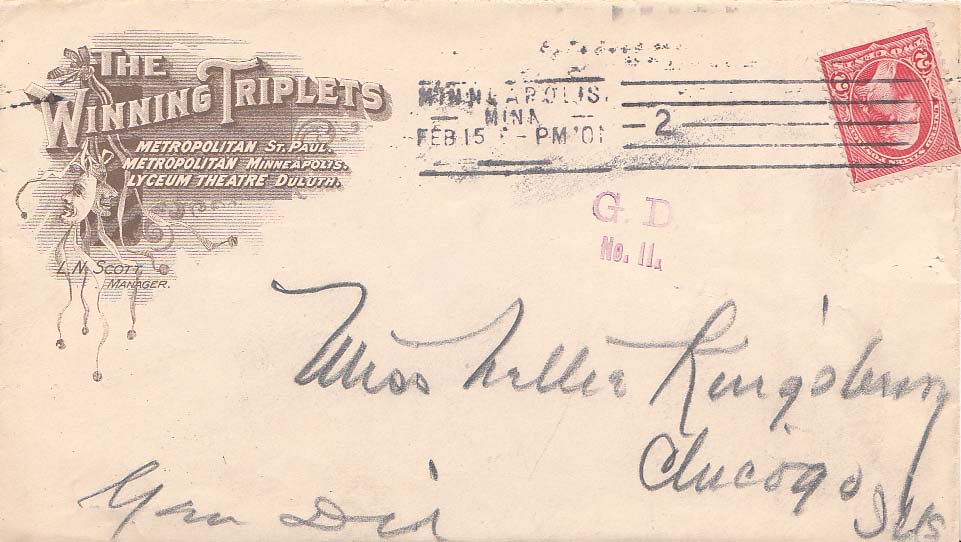 THE
WINNING TRIPLETS
METROPOLITAN ST. PAUL.
METROPOLITAN MINNEAPOLIS.
LYCEUM THEATRE DULUTH.
L. N. SCOTT,
MANAGER.
MINNEAPOLIS,
MINN
FEB 15 - PM '01
2
2 2
G. D
No. 11.
Miss Nellie Kingsbury
Chicago
Ills
Gen Del